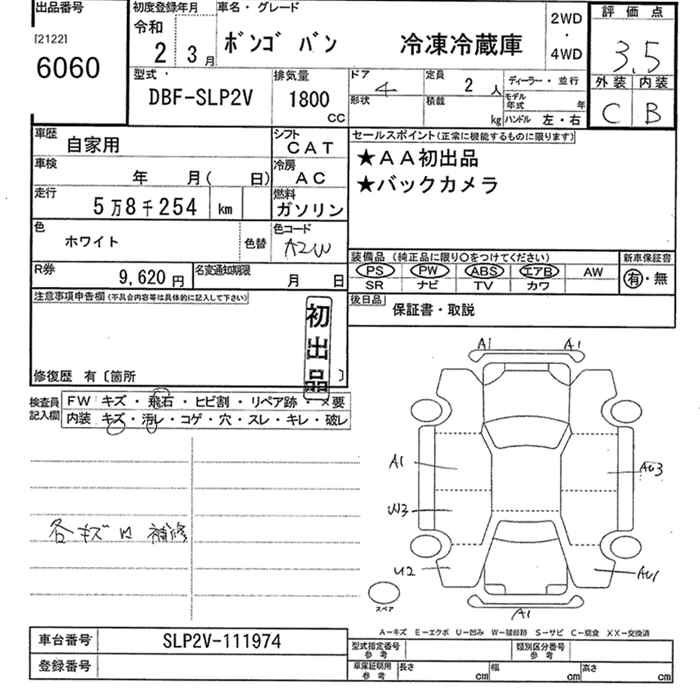 出品番号
[2122]
6060
初度登録年月
令和
2 3月
車名・グレード
ボンゴ バン 冷凍冷蔵庫
2WD
・
4WD
評価点
3.5
外装 内装
C B
型式
DBF-SLP2V
排気量
1800
cc
ドア
4
定員
2 人
ディーラー・並行
形状
積載
kg
モデル年式 年
ハンドル 左・右
車歴
自家用
シフト
CAT
車検
年 月( 日)
冷房
AC
走行
5万8千254 km
燃料
ガソリン
色
ホワイト
色替
色コード
A2W
R券
9,620 円
名変通知期限
月 日
セールスポイント(正常に機能するものに限ります)
★AA初出品
★バックカメラ
装備品 (純正品に限り○をつけてください)
PS PW ABS エアB AW
SR ナビ TV カワ
新車保証書
有・無
後日品
保証書・取説
注意事項申告欄(不具合内容等は具体的に記入して下さい)
初出品
修復歴 有〔箇所 〕
検査員記入欄
FW キズ・飛石・ヒビ割・リペア跡・×要
内装 キズ・汚レ・コゲ・穴・スレ・キレ・破レ
各キズ凹 補修
A1 A1
A1
AU3
U3
U2
AU1
A1
スペア
A-キズ E-エクボ U-凹み W-補修跡 S-サビ C-腐食 XX-交換済
車台番号
SLP2V-111974
登録番号
型式指定番号
参考
類別区分番号
参考
車庫証明用
参考
長さ cm
幅 cm
高さ cm